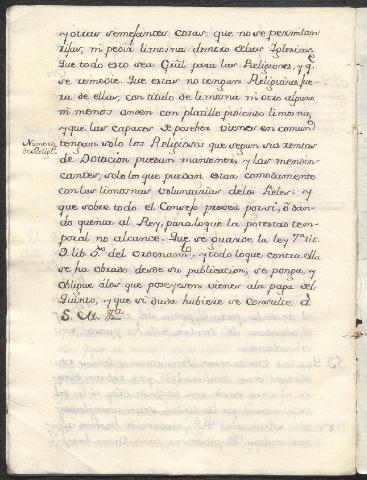 y otras semejantes cosas: que no se permitan
rifas, ni pedir limosna dentro de las Iglesias.
Que todo esto sea Gral para las Religiones, y q.e
se remedie. Que estas no tengan Religiosos fue-
ra de ellas, con titulo de limosna ni otro alguno
ni menos anden con platillo pidiendo limosna,
y que las capaces de poseher vienes en comun
Numero
de Religi.s
tengan solo los Religiosos que segun sus rentas
de Dotacion puedan mantener, y las mendi-
cantes, solo los que puedan estar comodamente
con las limosnas voluntarias de los fieles: y
que sobre todo el Consejo provea por si, ò dan-
do quenta al Rey, para lo que la potestad tem-
poral no alcance. Que se guarde la ley 7.ª tit.
9. lib. 5.º del ordenam.to y todo lo que contra ella
se ha obrado desde su publicacion, se ponga, y
obligue à los que poseyeren vienes à la paga del
Quinto, y que si duda hubiere se Consulte à
S. M.